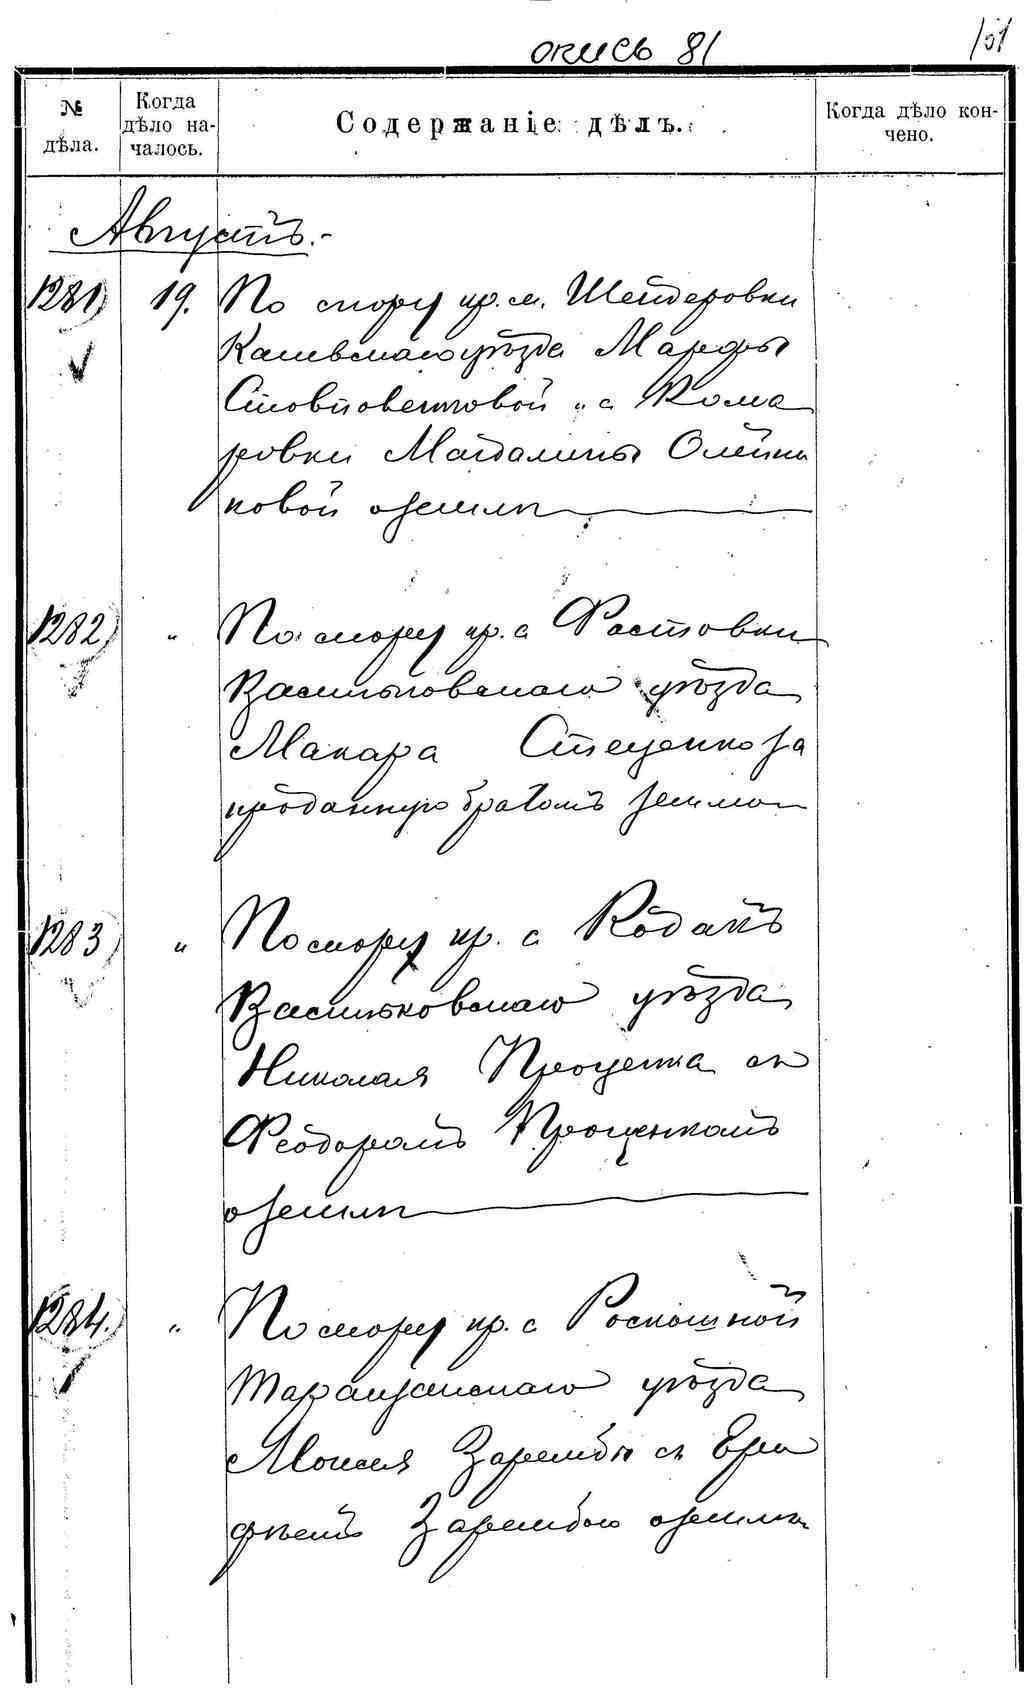 опись 81
151
№ дѣла.
Когда дѣло началось.
Содержаніе дѣлъ.
Когда дѣло кончено.
Августъ.-
1281) 19. По спору кр. м. Шендеровки
Каневскаго уѣзда Марфы
Стовповетовой " с Кома
ровки Магдалины Олейни
ковой о земли
1282) " По спору кр. с Фастовки
Васильковскаго уѣзда
Макара Стеценко за
проданную братомъ землю
1283) " По спору кр. с Кодакъ
Васильковскаго уѣзда
Николая Проценка съ
Феодоромъ Проценкомъ
о земли
1284.) " По спору кр. с Роскошной
Таращанскаго уѣзда
Моисея Зарембы съ Ери
фіемъ Зарембою о земли